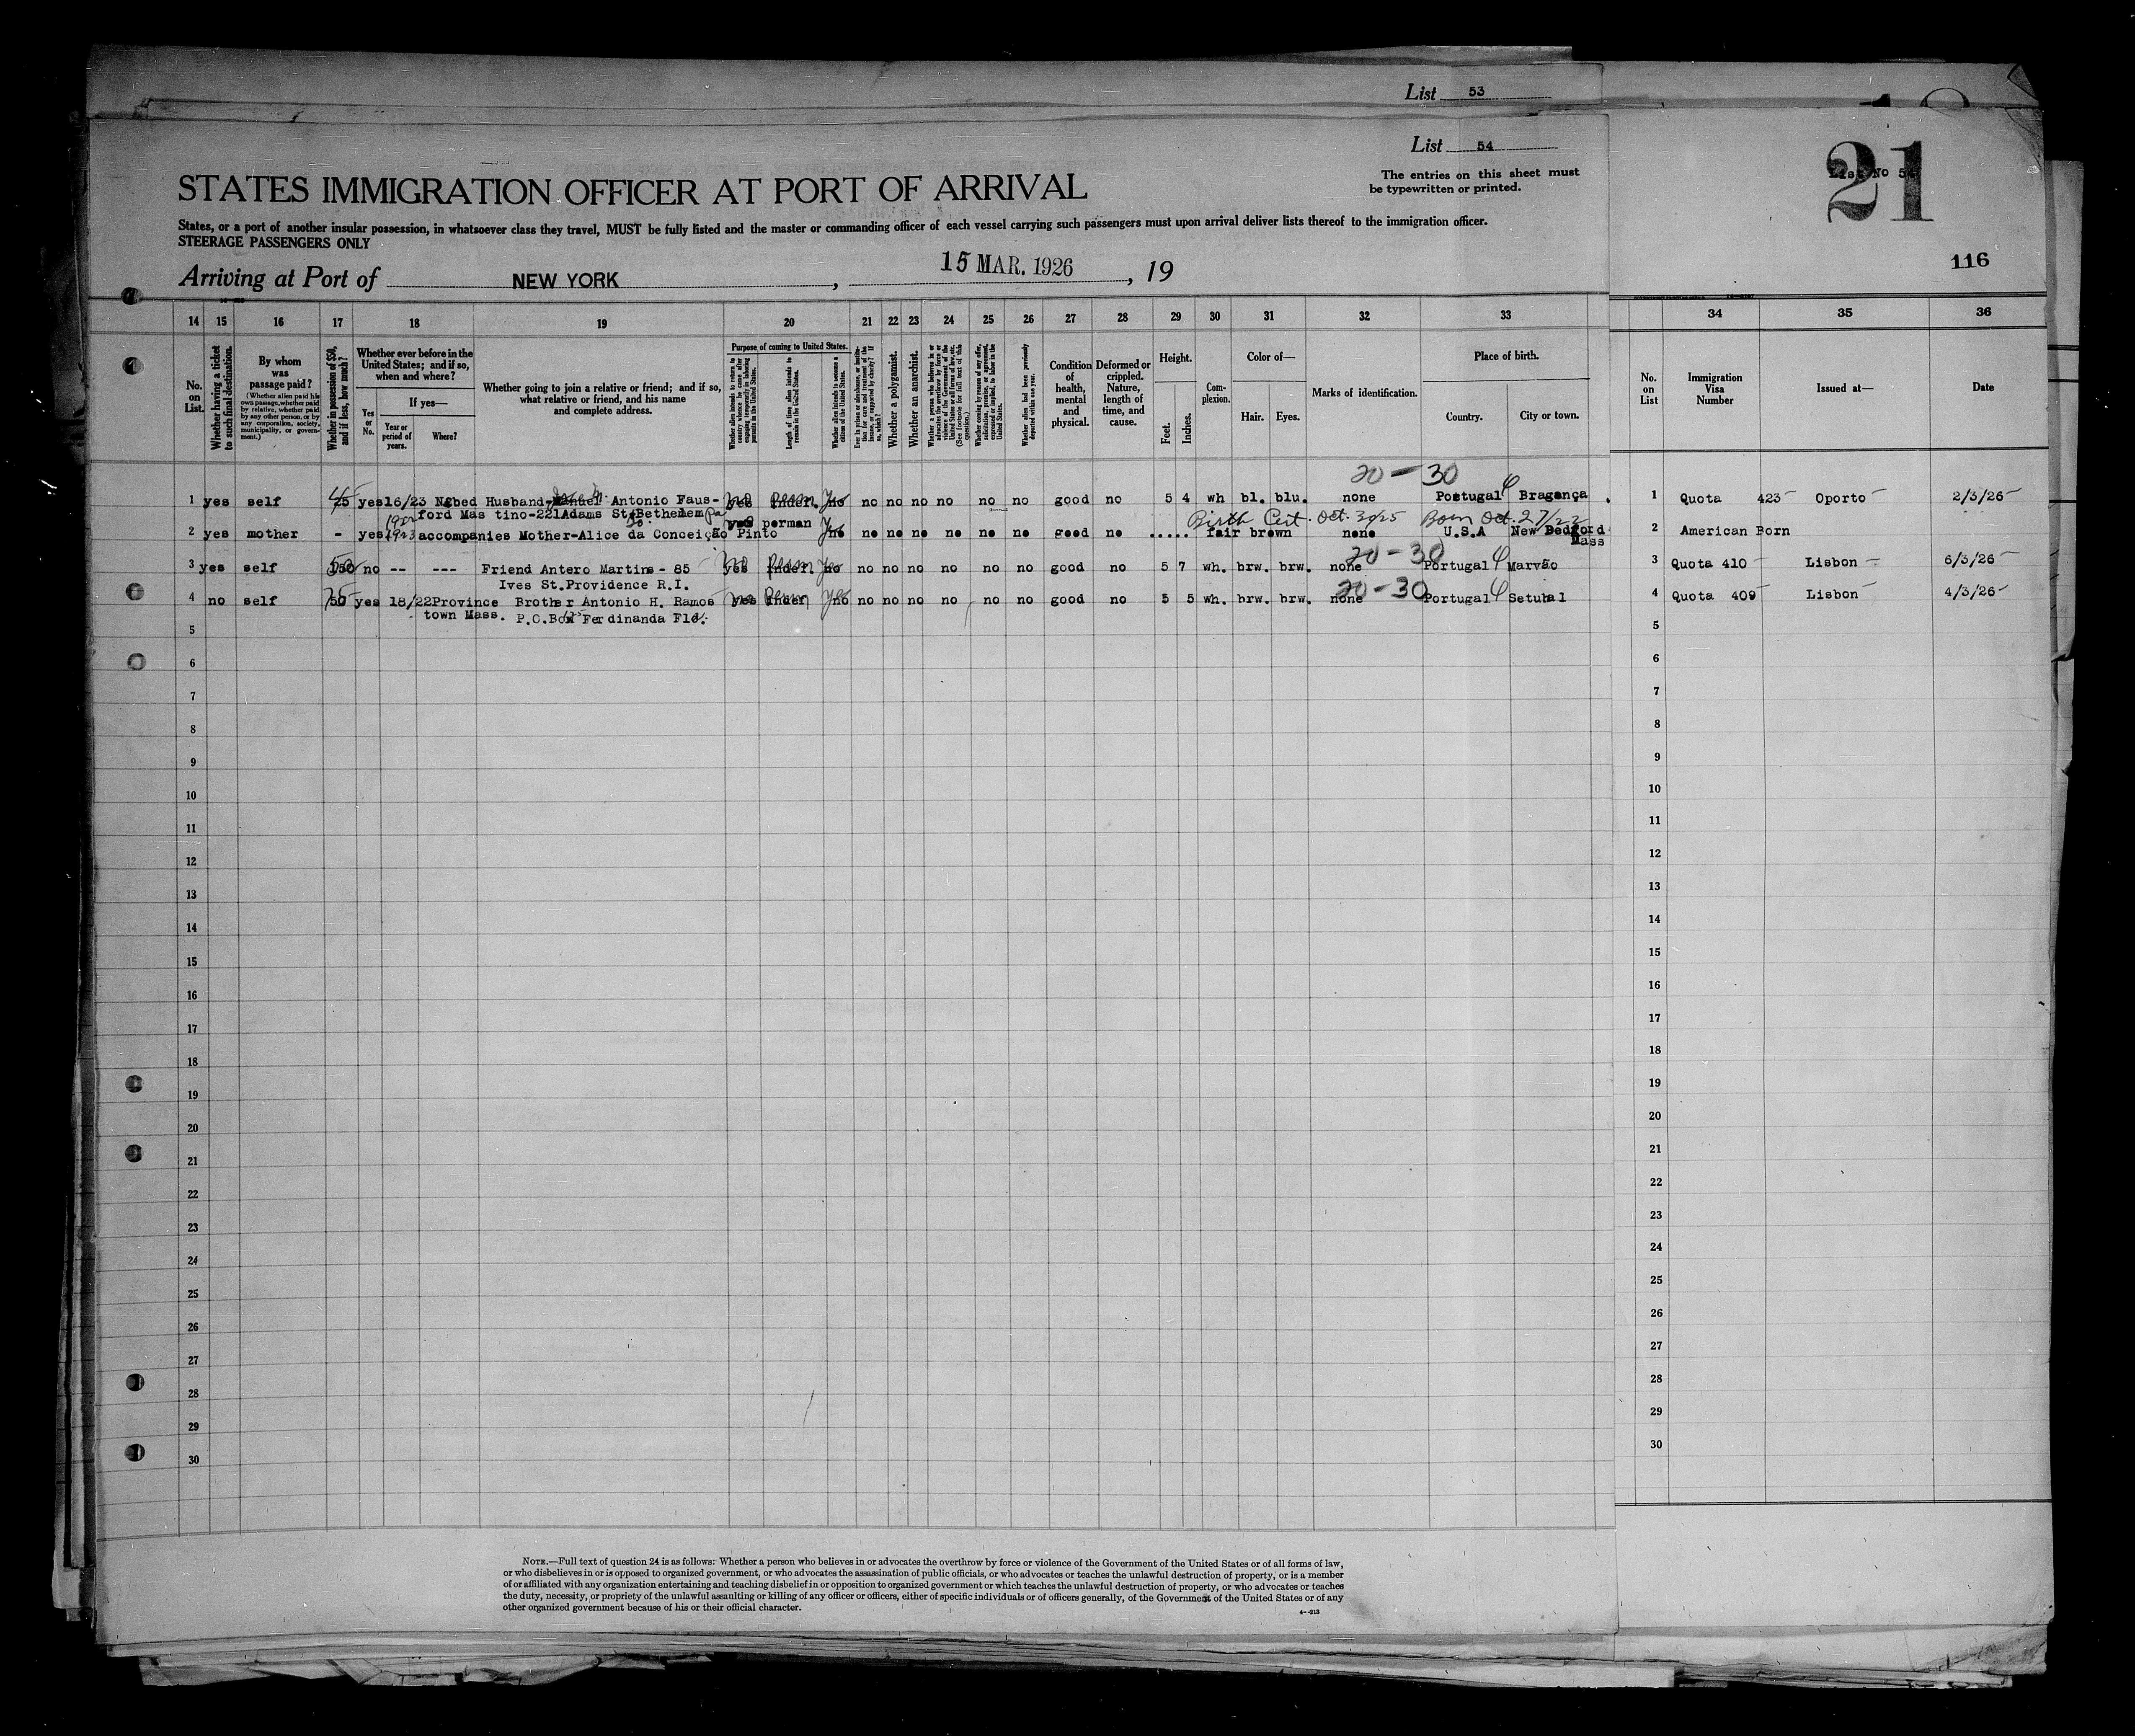 List 53
List 54
The entries on this sheet must
be typewritten or printed.
21
List No 54
116
STATES IMMIGRATION OFFICER AT PORT OF ARRIVAL
States, or a port of another insular possession, in whatsoever class they travel, MUST be fully listed and the master or commanding officer of each vessel carrying such passengers must upon arrival deliver lists thereof to the immigration officer.
STEERAGE PASSENGERS ONLY
Arriving at Port of NEW YORK, 15 MAR. 1926, 19
14 15 16 17 18 19 20 21 22 23 24 25 26 27 28 29 30 31 32 33 34 35 36
No. on List.
Whether having a ticket to such final destination.
By whom was passage paid?
(Whether alien paid his own passage, whether paid by relative, whether paid by any other person, or by any corporation, society, municipality, or government.)
Whether in possession of $50, and if less, how much?
Whether ever before in the United States; and if so, when and where?
Yes or No.
If yes—
Year or period of years.
Where?
Whether going to join a relative or friend; and if so, what relative or friend, and his name and complete address.
Purpose of coming to United States.
Whether alien intends to return to country whence he came after engaging temporarily in laboring pursuits in the United States.
Length of time alien intends to remain in the United States.
Whether alien intends to become a citizen of the United States.
Ever in prison or almshouse, or institution for care and treatment of the insane, or supported by charity? If so, which?
Whether a polygamist.
Whether an anarchist.
Whether a person who believes in or advocates the overthrow by force or violence of the Government of the United States or all forms of law, etc. (See footnote for full text of this question.)
Whether coming by reason of any offer, solicitation, promise, or agreement, expressed or implied, to labor in the United States.
Whether alien had been previously deported within one year.
Condition of health, mental and physical.
Deformed or crippled. Nature, length of time, and cause.
Height.
Feet. Inches.
Complexion.
Color of—
Hair. Eyes.
Marks of identification.
Place of birth.
Country. City or town.
No. on List
Immigration Visa Number
Issued at—
Date
20-30
1 yes self 75 yes 16/23 N.bed Husband- Antonio Faus- yes indef. no no no no no no no good no 5 4 wh bl. blu. none Portugal Bragança 1 Quota 423 Oporto 2/3/26
ford Mas tino-221Adams St.Bethehem Pa
Birth Cert. Oct. 30/25 Born Oct. 27/22
2 yes mother - yes 1923 accompanies Mother-Alice da Conceição Pinto yes perman no no no no no no no good no ..... fair brown none U.S.A New Bedford 2 American Born
Mass
20-30
3 yes self 150 no -- --- Friend Antero Martins - 85 yes indef. no no no no no no no good no 5 7 wh. brw. brw. none Portugal Marvão 3 Quota 410 Lisbon 6/3/26
Ives St.Providence R.I.
20-30
4 no self 50 yes 18/22 Province Brother Antonio H. Ramos yes indef no no no no no no no good no 5 5 wh. brw. brw. none Portugal Setubal 4 Quota 409 Lisbon 4/3/26
town Mass. P.O.Box Ferdinanda Fla.
5 5
6 6
7 7
8 8
9 9
10 10
11 11
12 12
13 13
14 14
15 15
16 16
17 17
18 18
19 19
20 20
21 21
22 22
23 23
24 24
25 25
26 26
27 27
28 28
29 29
30 30
NOTE.—Full text of question 24 is as follows: Whether a person who believes in or advocates the overthrow by force or violence of the Government of the United States or of all forms of law,
or who disbelieves in or is opposed to organized government, or who advocates the assassination of public officials, or who advocates or teaches the unlawful destruction of property, or is a member
of or affiliated with any organization entertaining and teaching disbelief in or opposition to organized government or which teaches the unlawful destruction of property, or who advocates or teaches
the duty, necessity, or propriety of the unlawful assaulting or killing of any officer or officers, either of specific individuals or of officers generally, of the Government of the United States or of any
other organized government because of his or their official character.
4-213